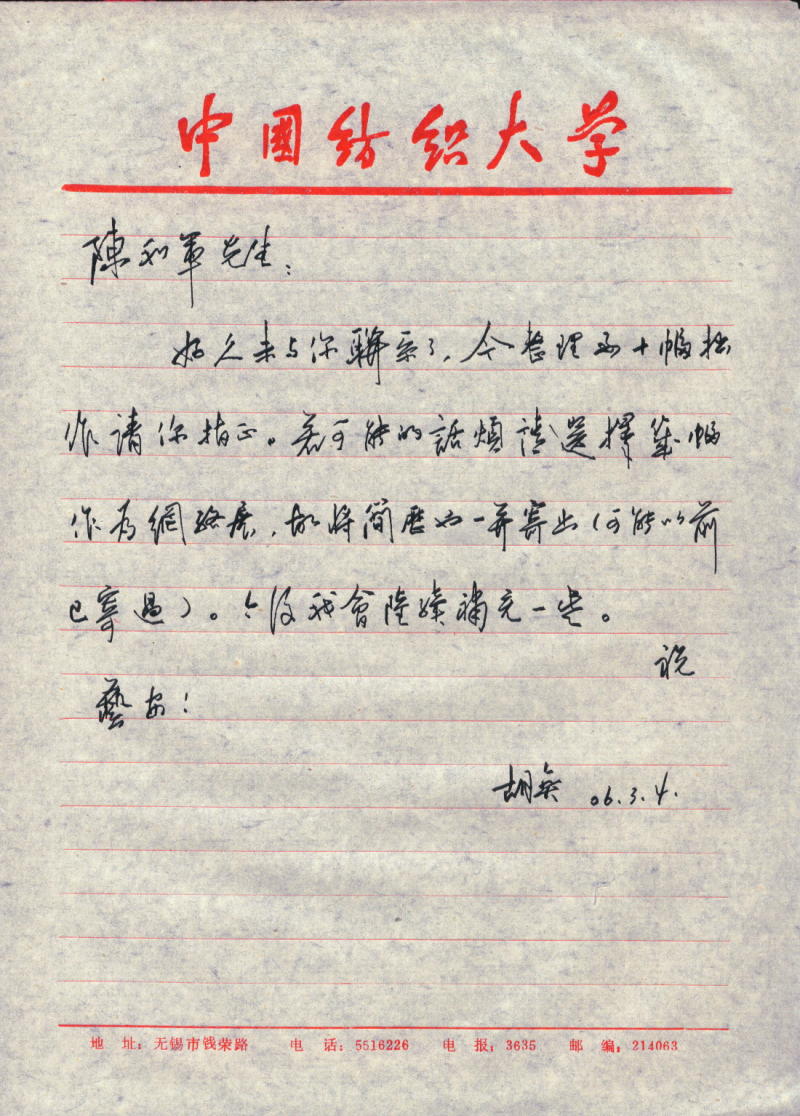 中國紡織大学
陳和軍先生：
好久未与你聯系了，今整理出十幅拙
作請你指正。若可能的話煩請選擇幾幅
作為網絡展，故將簡歷也一并寄出（可能以前
已寄過）。今后我會陸續補充一些。
祝
藝安！
胡奕 06.3.4.
地 址：无锡市钱荣路 电 话：5516226 电 报：3635 邮 编：214063